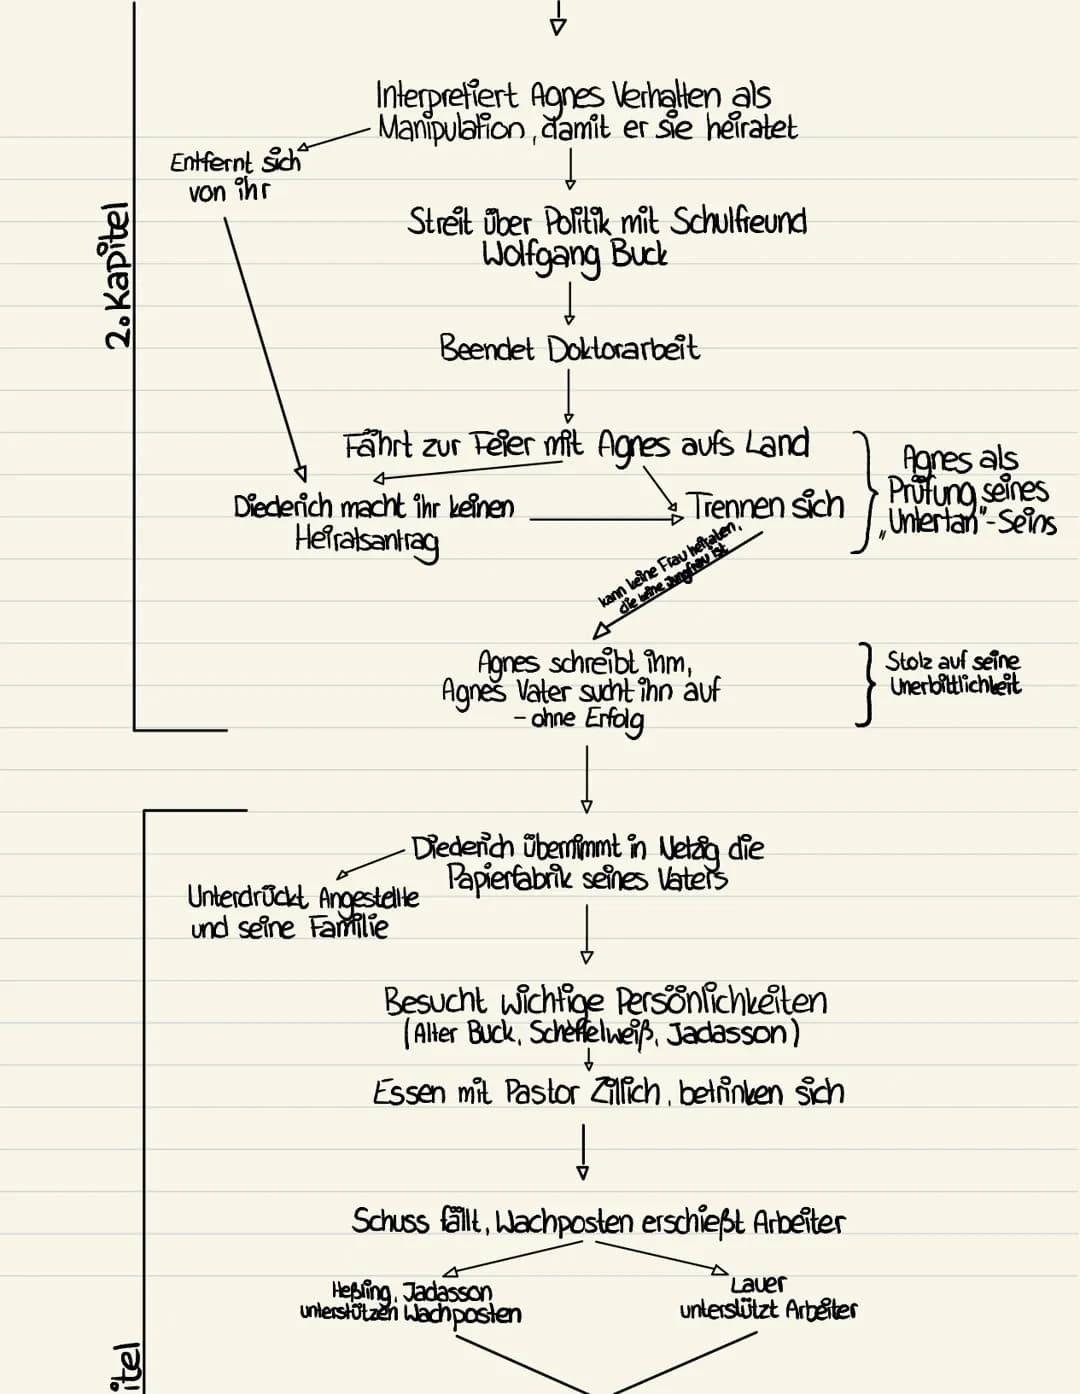 Interpretiert Agnes Verhalten als
Manipulation, damit er sie heiratet
Entfernt sich
von ihr
2. Kapitel
Streit über Politik mit Schulfreund
Wolfgang Buck
Beendet Doktorarbeit
Fährt zur Feier mit Agnes aufs Land
Diederich macht ihr keinen
Heiratsantrag
Trennen sich
Agnes als
Prüfung seines
„Untertan"-Seins
kann keine Frau heiraten,
die keine Jungfrau ist
Agnes schreibt ihm,
Agnes Vater sucht ihn auf
- ohne Erfolg
Stolz auf seine
Unerbittlichkeit
Diederich übernimmt in Netzig die
Papierfabrik seines Vaters
Unterdrückt Angestellte
und seine Familie
Besucht wichtige Persönlichkeiten
(Alter Buck, Scheffelweiß, Jadasson)
Essen mit Pastor Zillich, betrinken sich
Schuss fällt, Wachposten erschießt Arbeiter
Heßling, Jadasson
unterstützen Wachposten
Lauer
unterstützt Arbeiter
itel